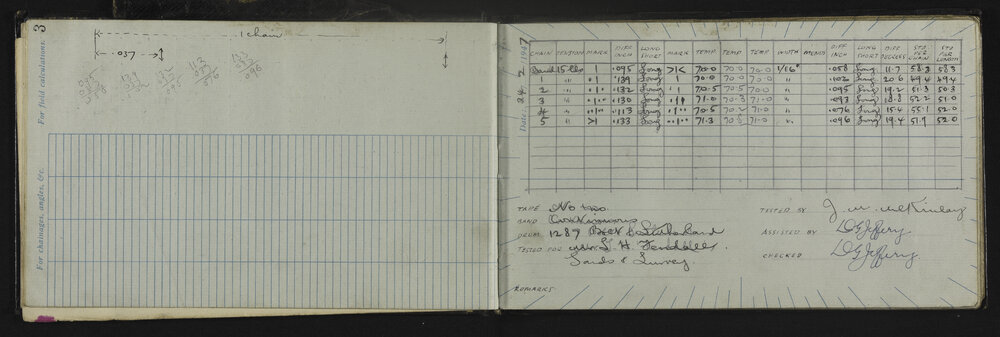 3
For field calculations.
For chainages, angles, &c.
1 chain
.037
Date: 24. 2. 1947
CHAIN TENSION MARK DIFF INCH LONG SHORT MARK TEMP TEMP TEMP WIDTH DIFF INCH LONG SHORT DIFF DEGREES STD PER CHAIN STD PER LENGTH
Band 15 lbs 1 .095 Long >|< 70.0 70.0 70.0 1/16" .058 Long 11.7 58.3 58.3
1 " .139 Long 1 70.0 70.0 70.0 " .102 Long 20.6 49.4 49.4
2 " .132 Long 70.5 70.5 70.0 " .095 Long 19.2 51.3 50.3
3 " .130 Long 71.0 70.8 71.0 " .093 Long 18.8 52.2 51.0
4 " .113 Long 70.5 70.2 71.0 " .076 Long 15.4 55.1 52.0
5 " >| .133 Long 71.3 70.8 71.0 " .096 Long 19.4 51.9 52.0
TAPE No
BAND
DRUM 1287 & Sutherland
TESTED FOR L. H.
Lands & Survey
REMARKS
TESTED BY J. W. McKinlay
ASSISTED BY D G Jeffery
CHECKED D G Jeffery